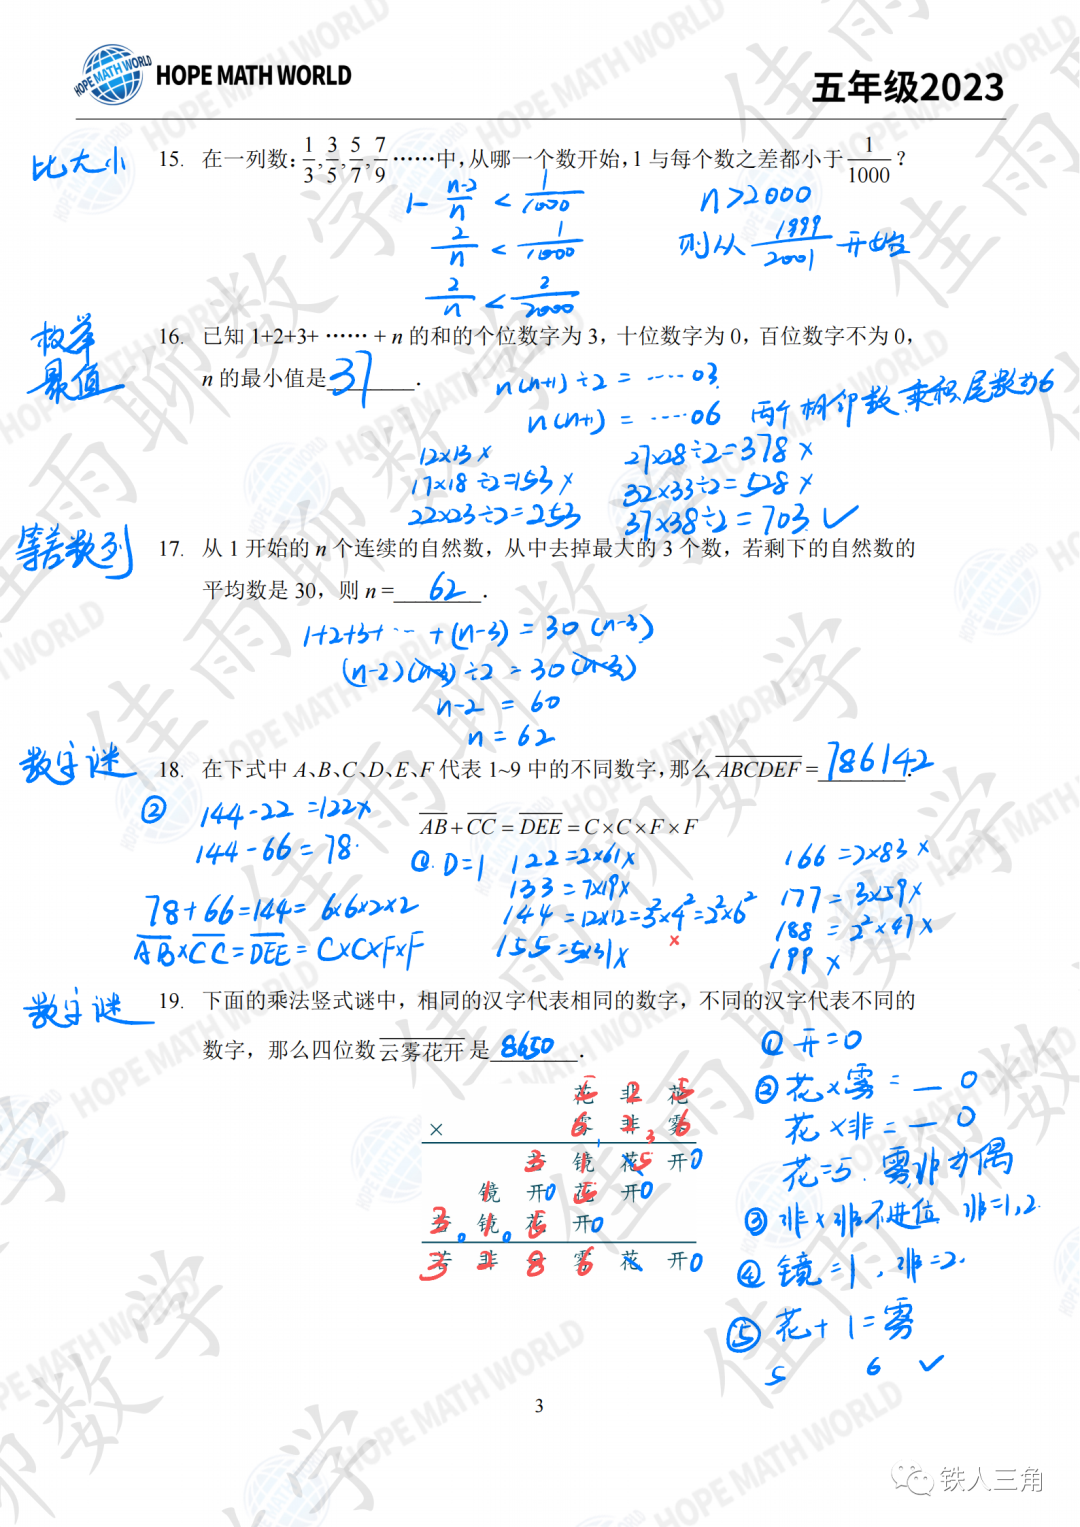 HOPE MATH WORLD
五年级2023
比大小
15. 在一列数: 1/3, 3/5, 5/7, 7/9 ……中,从哪一个数开始,1 与每个数之差都小于 1/1000 ?
1- n-2/n < 1/1000
n>2000
2/n < 1/1000
则从 1999/2001 开始
2/n < 2/2000
枚举
最值
16. 已知 1+2+3+ …… + n 的和的个位数字为 3, 十位数字为 0, 百位数字不为 0,
n 的最小值是 37 .
n(n+1)÷2 = ……03
n(n+1) = ……06 两个相邻数,乘积尾数为6
12×13 ×
27×28÷2=378 ×
17×18÷2=153 ×
32×33÷2=528 ×
22×23÷2=253
37×38÷2=703 ✓
等差数列
17. 从 1 开始的 n 个连续的自然数, 从中去掉最大的 3 个数, 若剩下的自然数的
平均数是 30, 则 n = 62 .
1+2+3+…+(n-3) = 30(n-3)
(n-2)(n-3)÷2 = 30(n-3)
n-2 = 60
n = 62
数字谜
18. 在下式中 A、B、C、D、E、F 代表 1~9 中的不同数字, 那么 ABCDEF = 786142 .
② 144-22=122×
AB + CC = DEE = C×C×F×F
144-66=78.
①. D=1 122=2×61×
166=2×83 ×
133=7×19×
177=3×59×
78+66=144=6×6×2×2
144=12×12=3²×4²=2²×6²
×
188=2²×47×
AB×CC=DEE=C×C×F×F
155=5×31×
199 ×
数字谜
19. 下面的乘法竖式谜中, 相同的汉字代表相同的数字, 不同的汉字代表不同的
数字, 那么四位数 云雾花开 是 8650 .
① 开=0
花 非 花
5 2 5
② 花×雾=—0
× 雾 非 雾
6 2 6
花×非=—0
若 镜 花 开
3 1 5 0
花=5. 雾,非为偶
镜 开 花 开
1 0 5 0
③ 非×非不进位 非=1,2.
若 镜 花 开
3 1 5 0
④ 镜=1, 非=2.
若 非 云 雾 花 开
3 2 8 6 0
⑤ 花+1=雾
5 6 ✓
3
铁人三角
佳雨聊数学